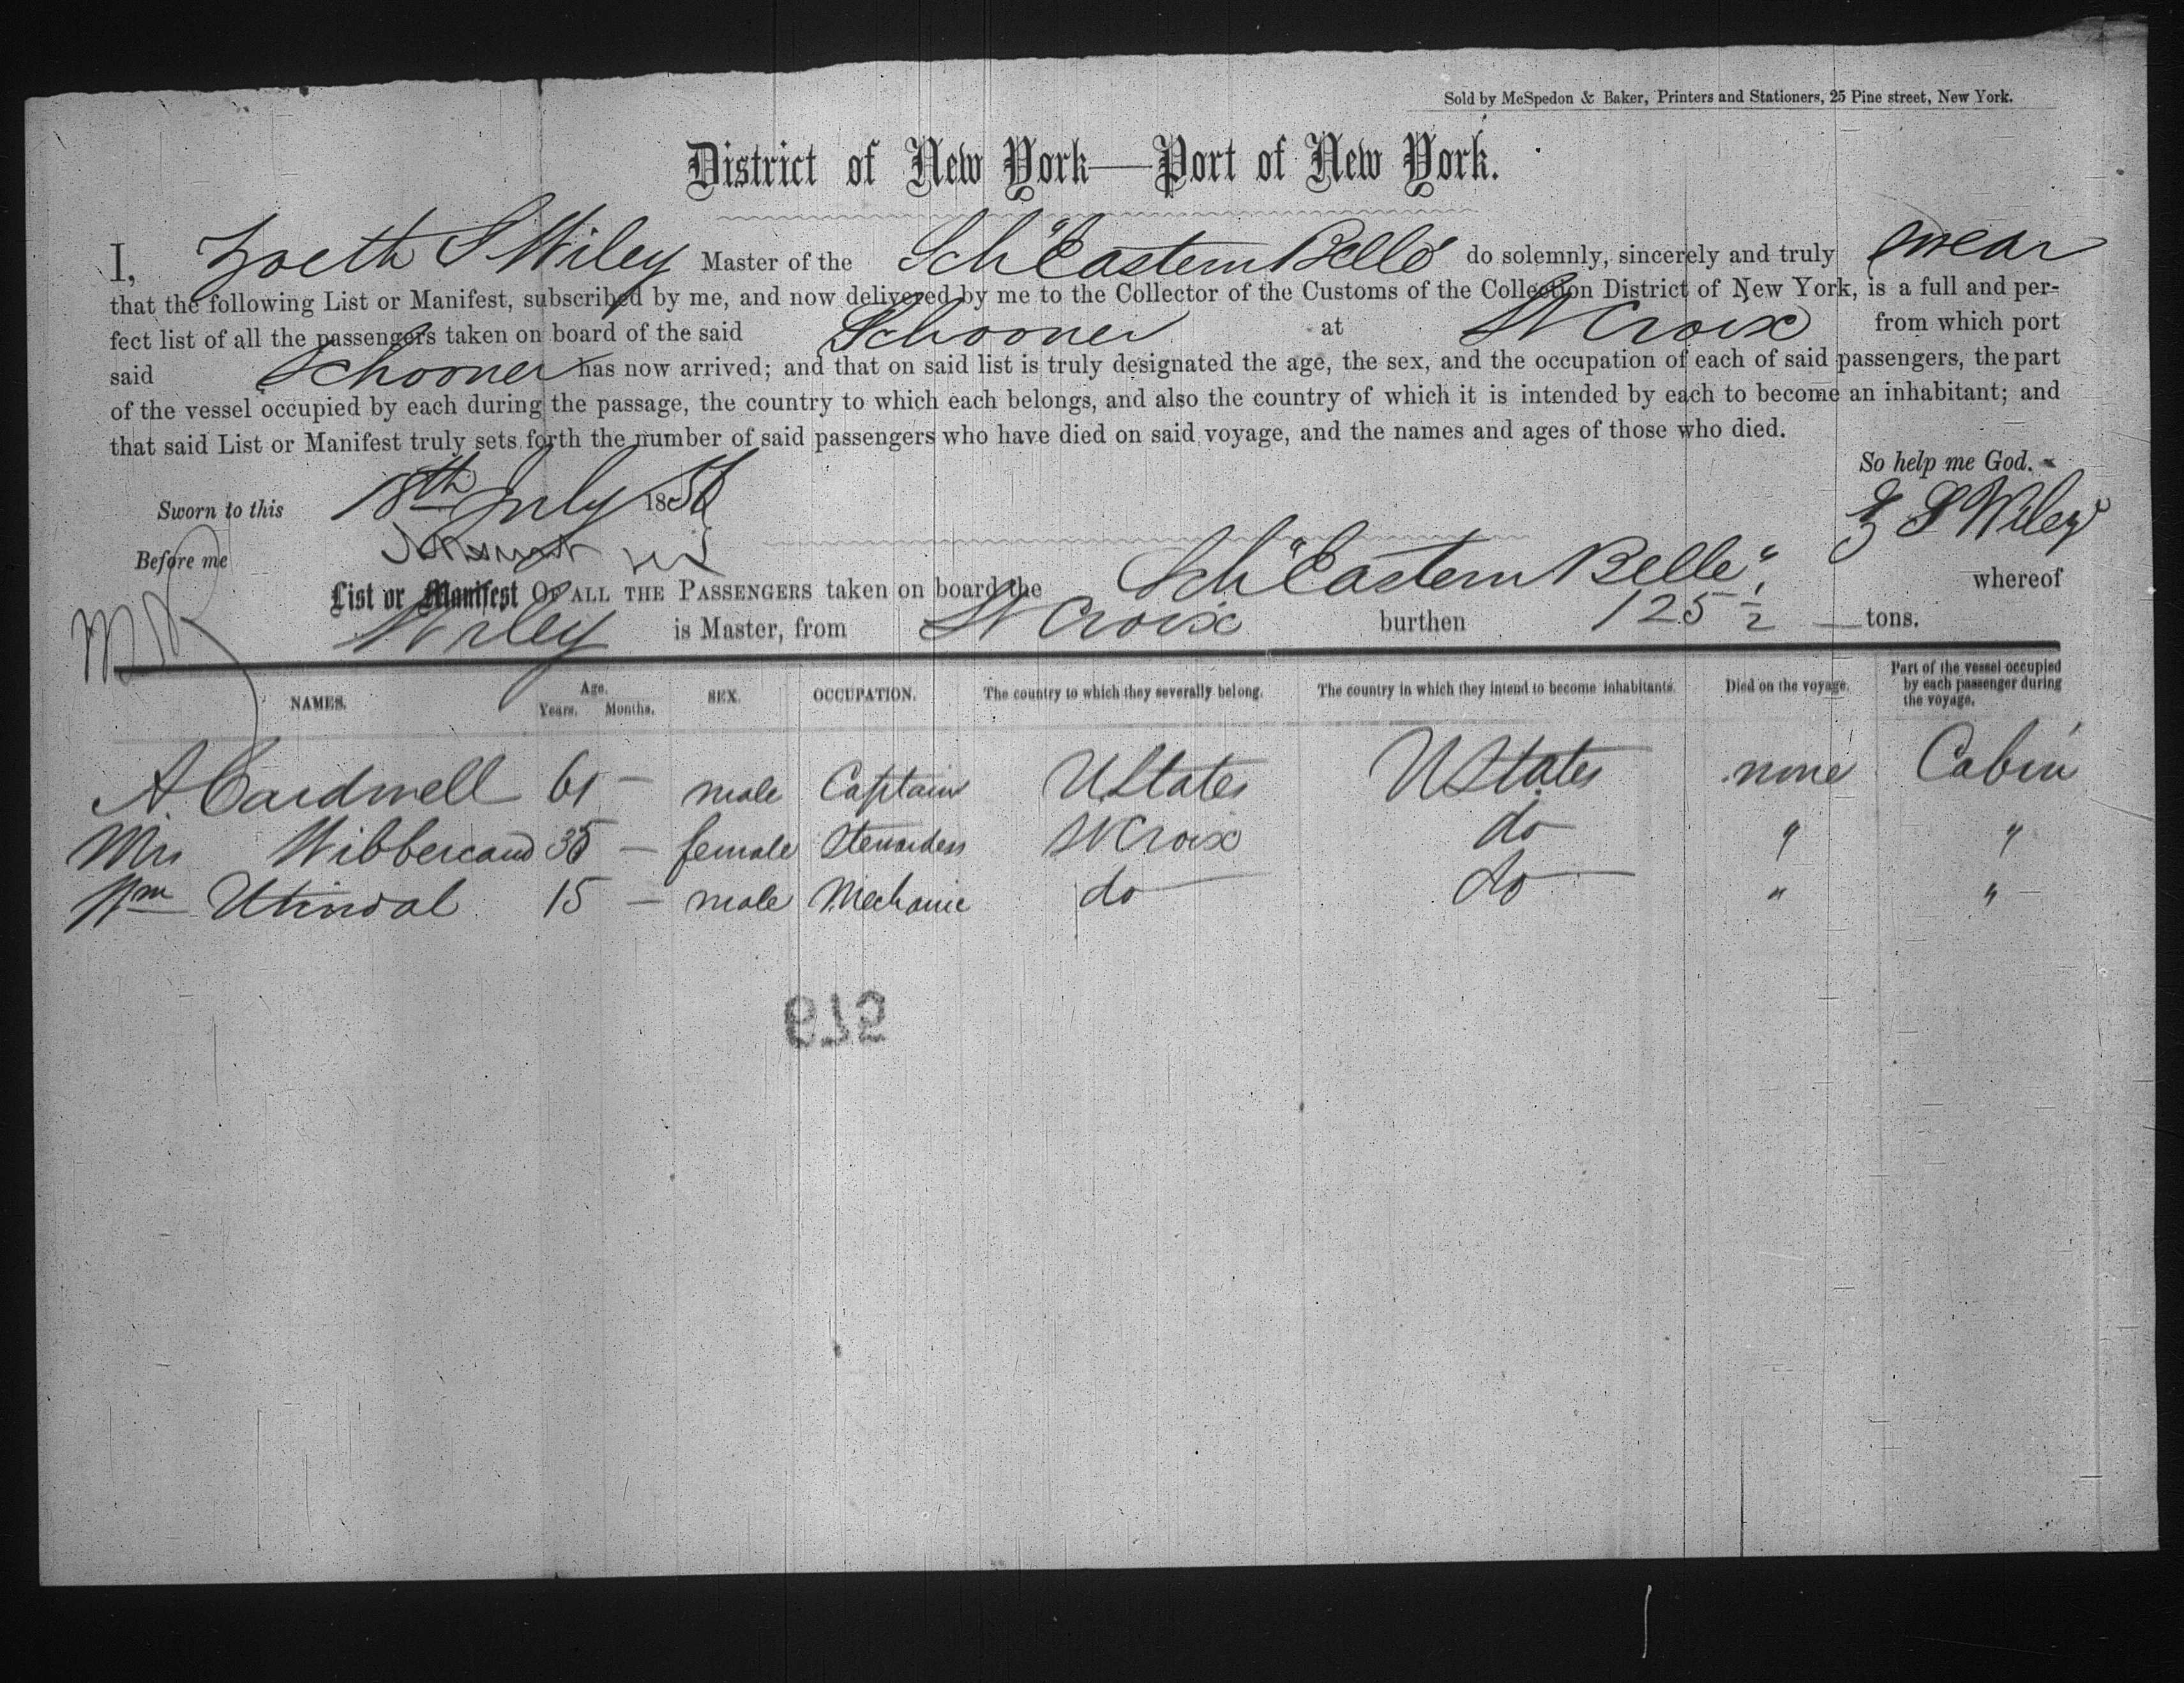 Sold by McSpedon & Baker, Printers and Stationers, 25 Pine street, New York.
District of New York—Port of New York.
I, Zoeth S Wiley Master of the Sch "Eastern Belle" do solemnly, sincerely and truly swear
that the following List or Manifest, subscribed by me, and now delivered by me to the Collector of the Customs of the Collection District of New York, is a full and per-
fect list of all the passengers taken on board of the said Schooner at St Croix from which port
said Schooner has now arrived; and that on said list is truly designated the age, the sex, and the occupation of each of said passengers, the part
of the vessel occupied by each during the passage, the country to which each belongs, and also the country of which it is intended by each to become an inhabitant; and
that said List or Manifest truly sets forth the number of said passengers who have died on said voyage, and the names and ages of those who died.
So help me God.
Sworn to this 18th July 18
Z S Wiley
Before me
List or Manifest OF ALL THE PASSENGERS taken on board the Sch "Eastern Belle", whereof
Wiley is Master, from St Croix burthen 125 1/2 tons.
NAMES. Age. Years. Months. SEX. OCCUPATION. The country to which they severally belong. The country in which they intend to become inhabitants. Died on the voyage. Part of the vessel occupied by each passenger during the voyage.
A Cardwell 61 — male Captain U States U States none Cabin
Mrs 35 — female Stewardess St Croix do " "
Wm 15 — male Mechanic do do " "
912